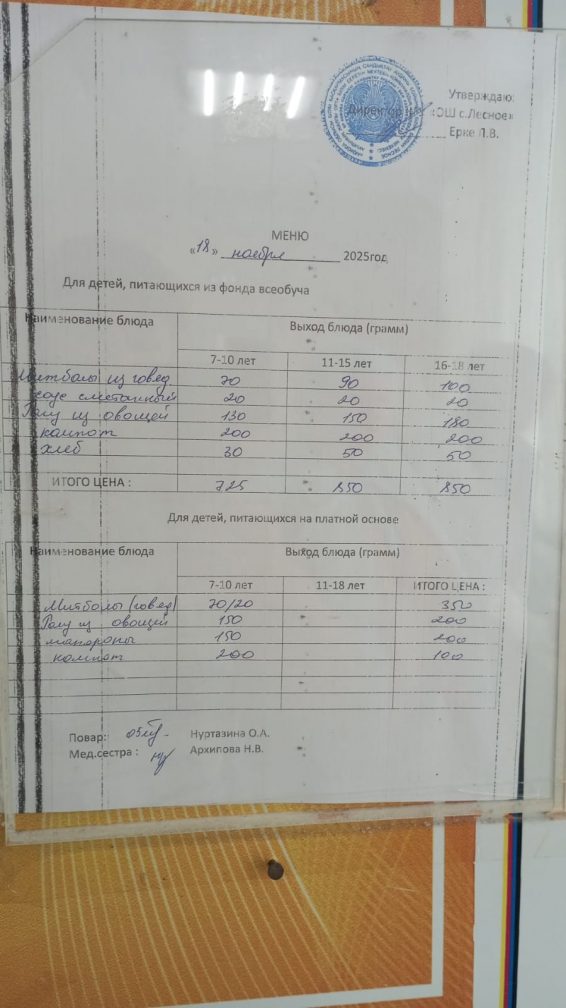 Утверждаю:
Директор КГУ «ОШ с.Лесное»
Ерке Л.В.
МЕНЮ
«18» ноября 2025год
Для детей, питающихся из фонда всеобуча
Наименование блюда Выход блюда (грамм)
7-10 лет 11-15 лет 16-18 лет
Митболы из говяд 70 90 100
соус сметанный 20 20 20
Рагу из овощей 130 150 180
компот 200 200 200
хлеб 30 50 50
ИТОГО ЦЕНА : 725 850 850
Для детей, питающихся на платной основе
Наименование блюда Выход блюда (грамм)
7-10 лет 11-18 лет ИТОГО ЦЕНА :
Митболы (говяд) 70/20 350
Рагу из овощей 150 200
макароны 150 200
компот 200 100
Повар: Нуртазина О.А.
Мед.сестра : Архипова Н.В.